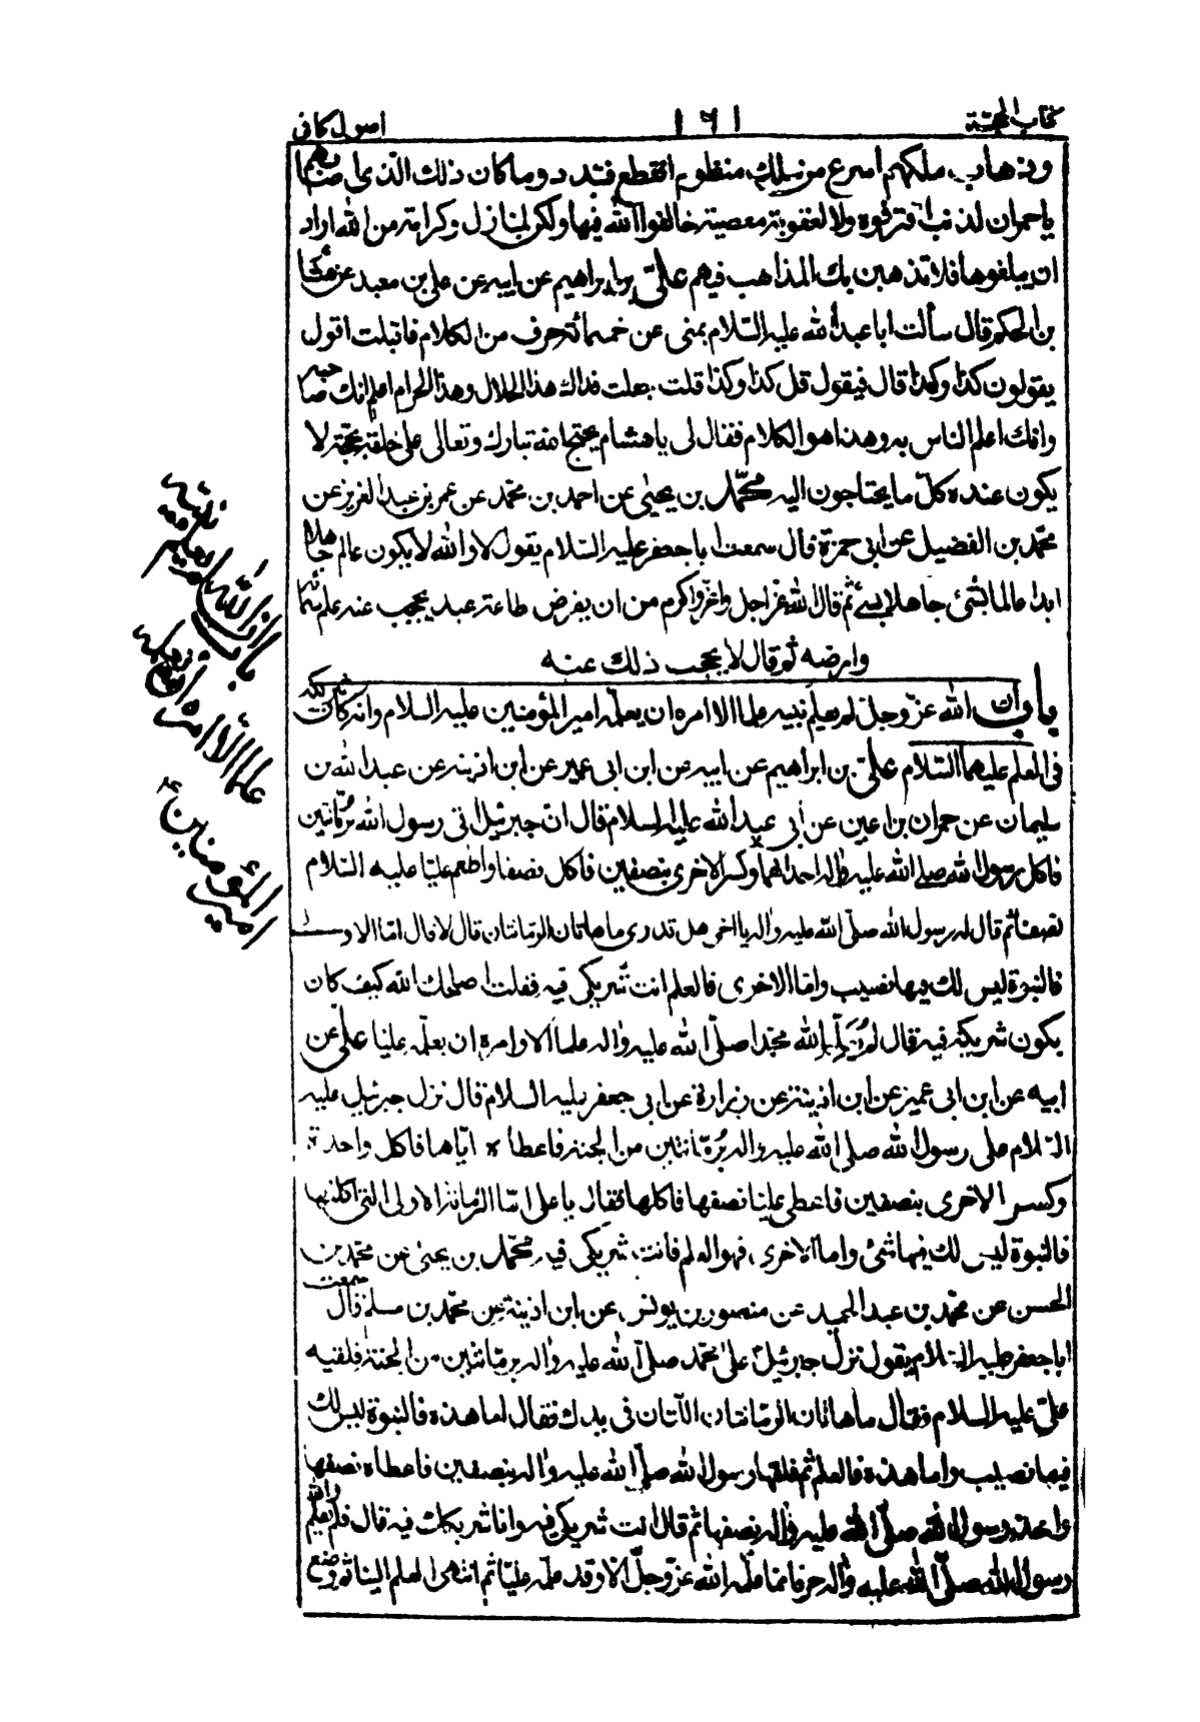 كتاب الحجة
١٦١
اصول كافى
وذهاب ملكهم اسرع من سلك منظوم انقطع فتبدد وما كان ذلك الذى اصابهم
ياحمران لذنب اقترفوه ولا لعقوبة معصية خالفوا الله فيها ولكن لمنازل وكرامة من الله اراد
ان يبلغوها فلا تذهبن بك المذاهب فيهم على بن ابراهيم عن ابيه عن على بن معبد عن هشام
بن الحكم قال سألت ابا عبد الله عليه السلام بمنى عن خمسمائة حرف من الكلام فاقبلت اقول
يقولون كذا وكذا قال فيقول قل كذا وكذا قلت جعلت فداك هذا الحلال وهذا الحرام اعلم انك صاحبه
وانك اعلم الناس به وهذا هو الكلام فقال لى ياهشام يحتج الله تبارك وتعالى على خلقه بحجة لا
يكون عنده كل ما يحتاجون اليه محمد بن يحيى عن احمد بن محمد عن عمر بن عبد العزيز عن
محمد بن الفضيل عن ابى حمزة قال سمعت ابا جعفر عليه السلام يقول لا والله لا يكون عالم جاهلا
ابدا عالما بشئ جاهلا بشئ ثم قال الله عز اجل واعز واكرم من ان يفرض طاعة عبد يحجب عنه علم سمائه
وارضه ثم قال لا يحجب ذلك عنه
باب ان الله عز وجل لم يعلم نبيه علما الا امره ان يعلمه امير المؤمنين عليه السلام وانه كان شريكه
فى العلم عليهما السلام على بن ابراهيم عن ابيه عن ابن ابى عمير عن ابن اذينة عن عبد الله بن
سليمان عن حمران بن اعين عن أبى عبد الله عليه السلام قال ان جبرئيل اتى رسول الله برمانتين
فاكل رسول الله صلى الله عليه واله احداهما وكسر الاخرى بنصفين فاكل نصفا واطعم عليا عليه السلام
نصفا ثم قال له رسول الله صلى الله عليه واله يا اخى هل تدرى ما هاتان الرمانتان قال لا قال اما الاولى
فالنبوة ليس لك فيها نصيب واما الاخرى فالعلم انت شريكى فيه فقلت اصلحك الله كيف كان
يكون شريكه فيه قال لم يعلم الله محمدا صلى الله عليه واله علما الا وامره ان يعلمه عليا على عن
ابيه عن ابن ابى عمير عن ابن اذينة عن زرارة عن ابى جعفر عليه السلام قال نزل جبرئيل عليه
السلام على رسول الله صلى الله عليه واله برمانتين من الجنة فاعطاه اياهما فاكل واحدة
وكسر الاخرى بنصفين فاعطى عليا نصفها فاكلها فقال يا على اما الرمانة الاولى التى اكلتها
فالنبوة ليس لك فيها شئ واما الاخرى فهو العلم فانت شريكى فيه محمد بن يحيى عن محمد بن
الحسن عن محمد بن عبد الحميد عن منصور بن يونس عن ابن اذينة عن محمد بن مسلم قال سمعت
ابا جعفر عليه السلام يقول نزل جبرئيل على محمد صلى الله عليه واله برمانتين من الجنة فلقيه
على عليه السلام فقال ما هاتان الرمانتان اللتان فى يدك فقال اما هذه فالنبوة ليس لك
فيها نصيب واما هذه فالعلم ثم فلقها رسول الله صلى الله عليه واله بنصفين فاعطاه نصفها
واخذ رسول الله صلى الله عليه واله نصفها ثم قال انت شريكى فيه وانا شريكك فيه قال فلم يعلم والله
رسول الله صلى الله عليه واله حرفا مما علمه الله عز وجل الا وقد علمه عليا ثم انتهى العلم الينا ثم وضع
باب ان الله لم يعلم نبيه
علما الا امره ان يعلمه
امير المؤمنين ع